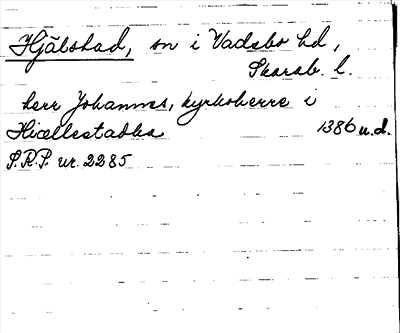 Hjälstad, sn i Vadsbo hd,
Skarab. l.
herr Johannes, kyrkoherre i
Hiællestadha 1386 u.d.
S.R.P. nr. 2285